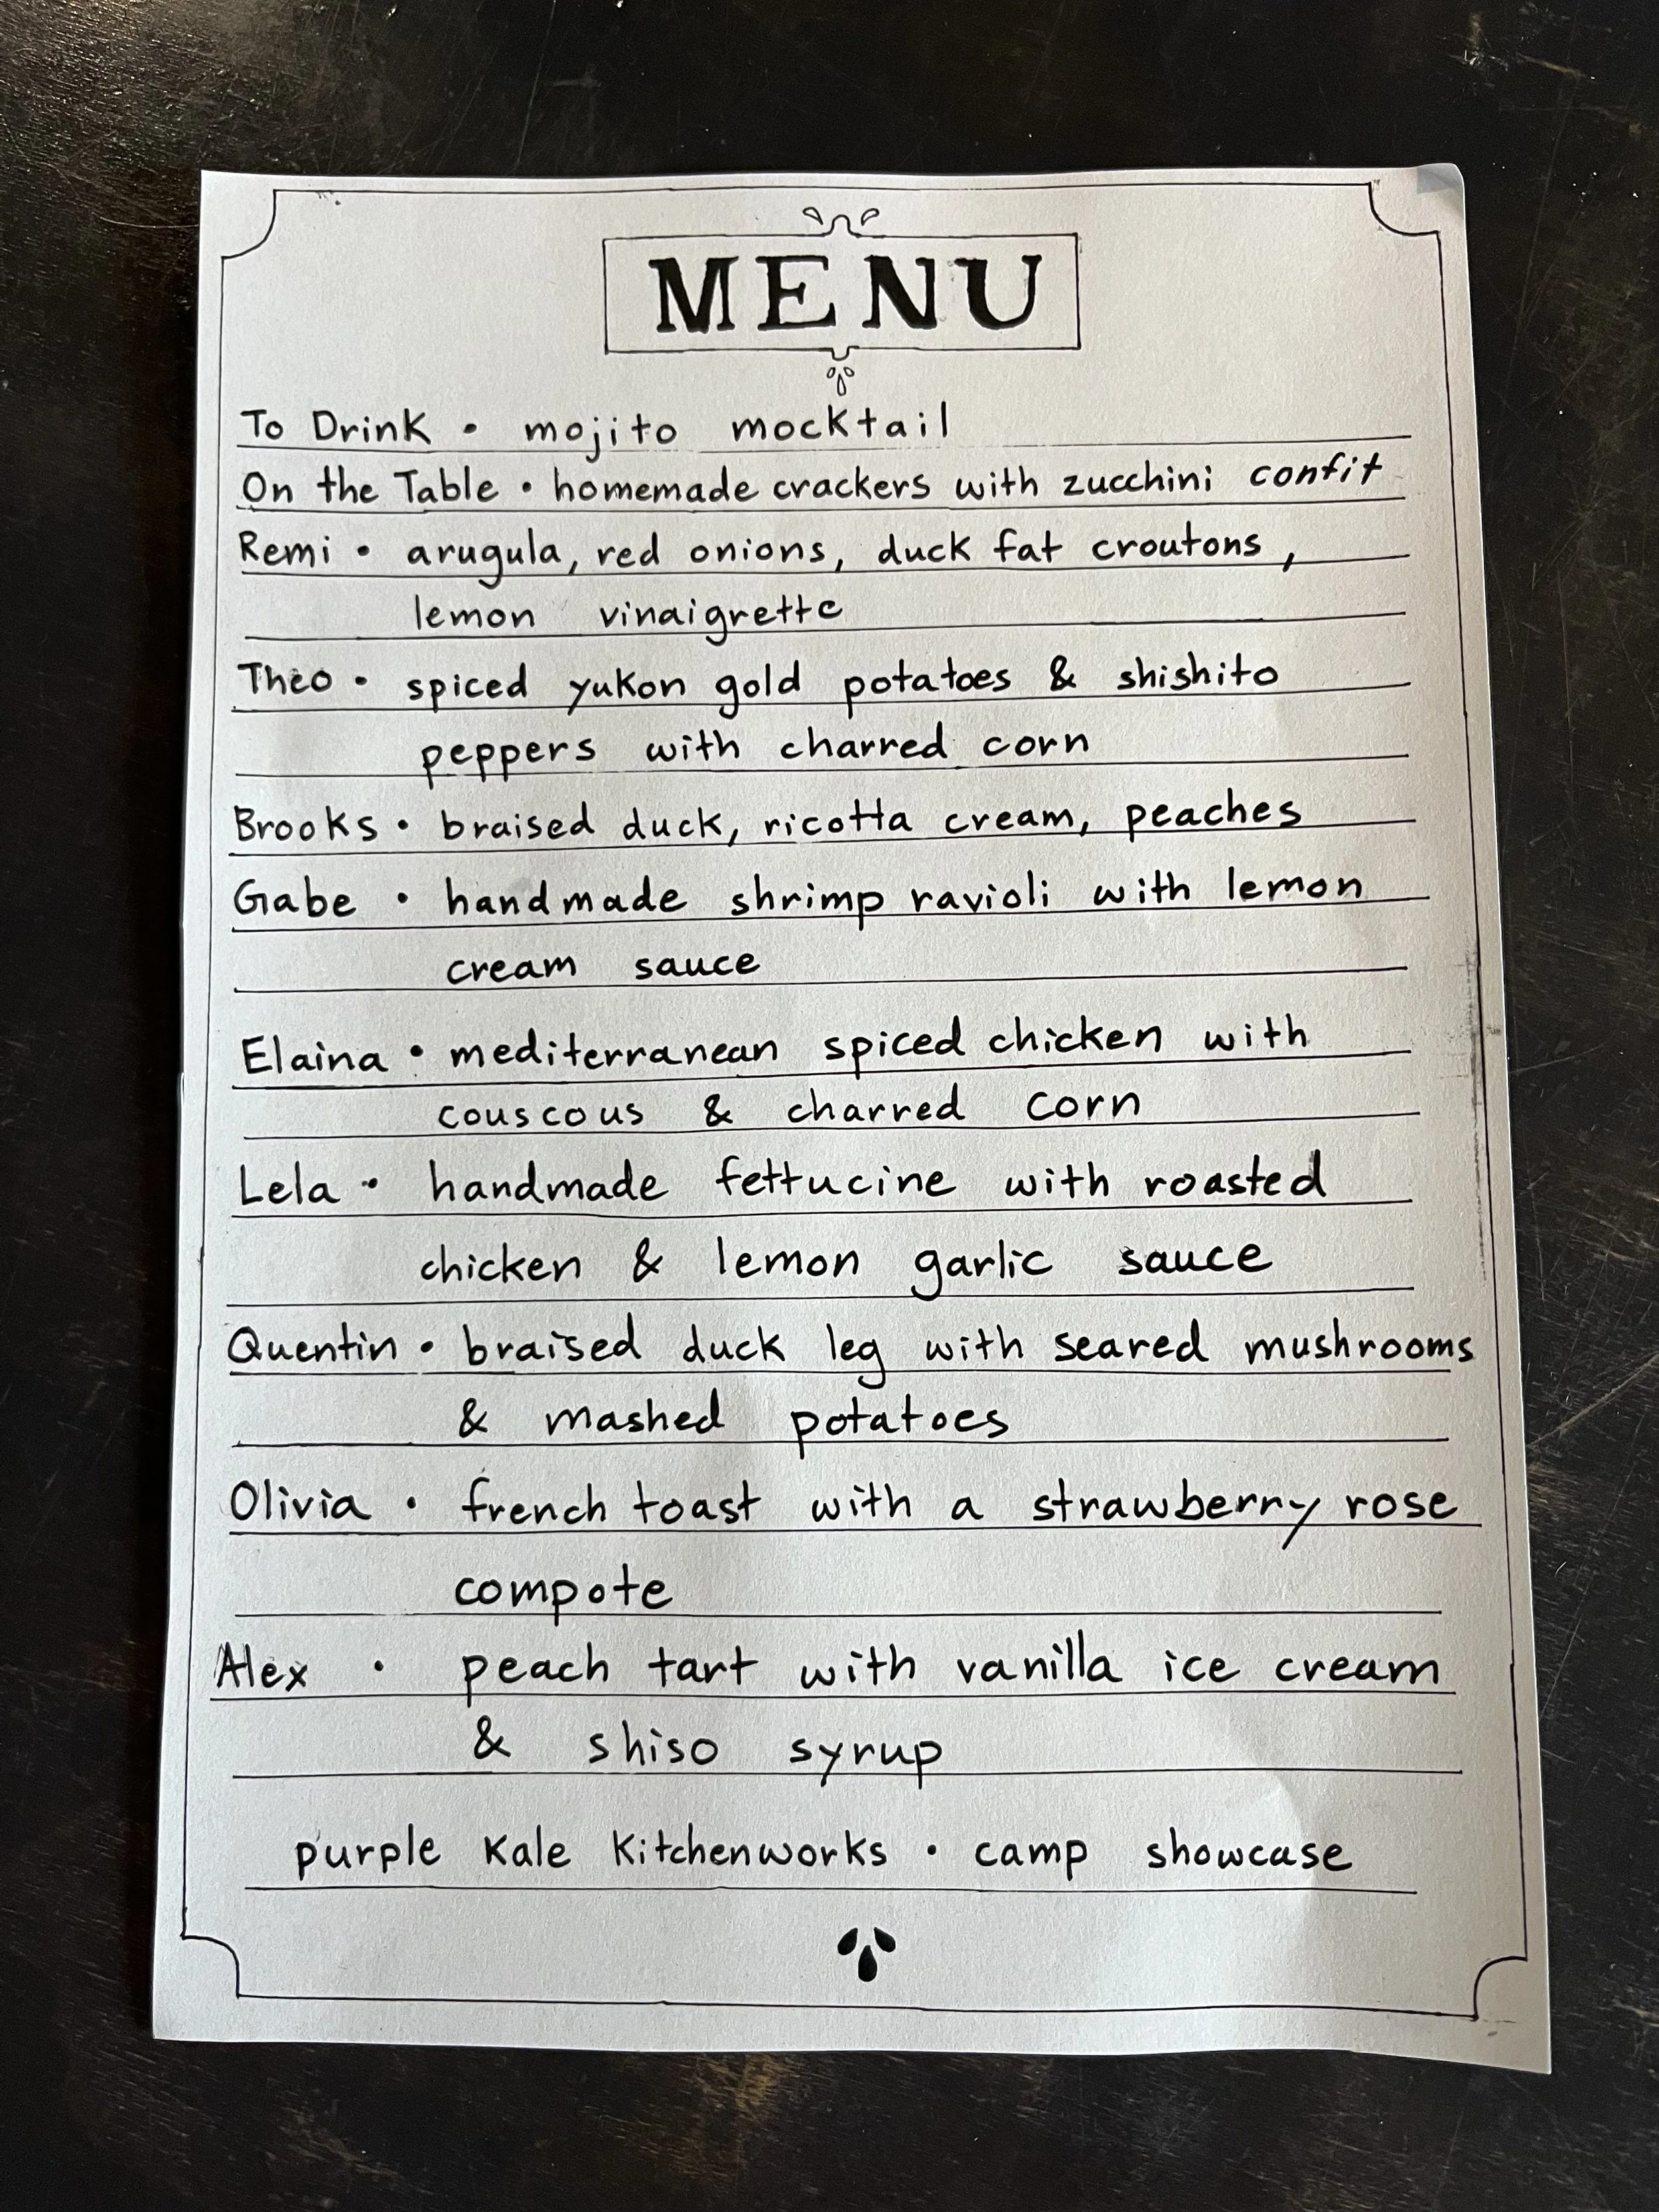 MENU
To Drink • mojito mocktail
On the Table • homemade crackers with zucchini confit
Remi • arugula, red onions, duck fat croutons,
lemon vinaigrette
Theo • spiced yukon gold potatoes & shishito
peppers with charred corn
Brooks • braised duck, ricotta cream, peaches
Gabe • handmade shrimp ravioli with lemon
cream sauce
Elaina • mediterranean spiced chicken with
couscous & charred corn
Lela • handmade fettucine with roasted
chicken & lemon garlic sauce
Quentin • braised duck leg with seared mushrooms
& mashed potatoes
Olivia • french toast with a strawberry rose
compote
Alex • peach tart with vanilla ice cream
& shiso syrup
purple kale kitchenworks • camp showcase